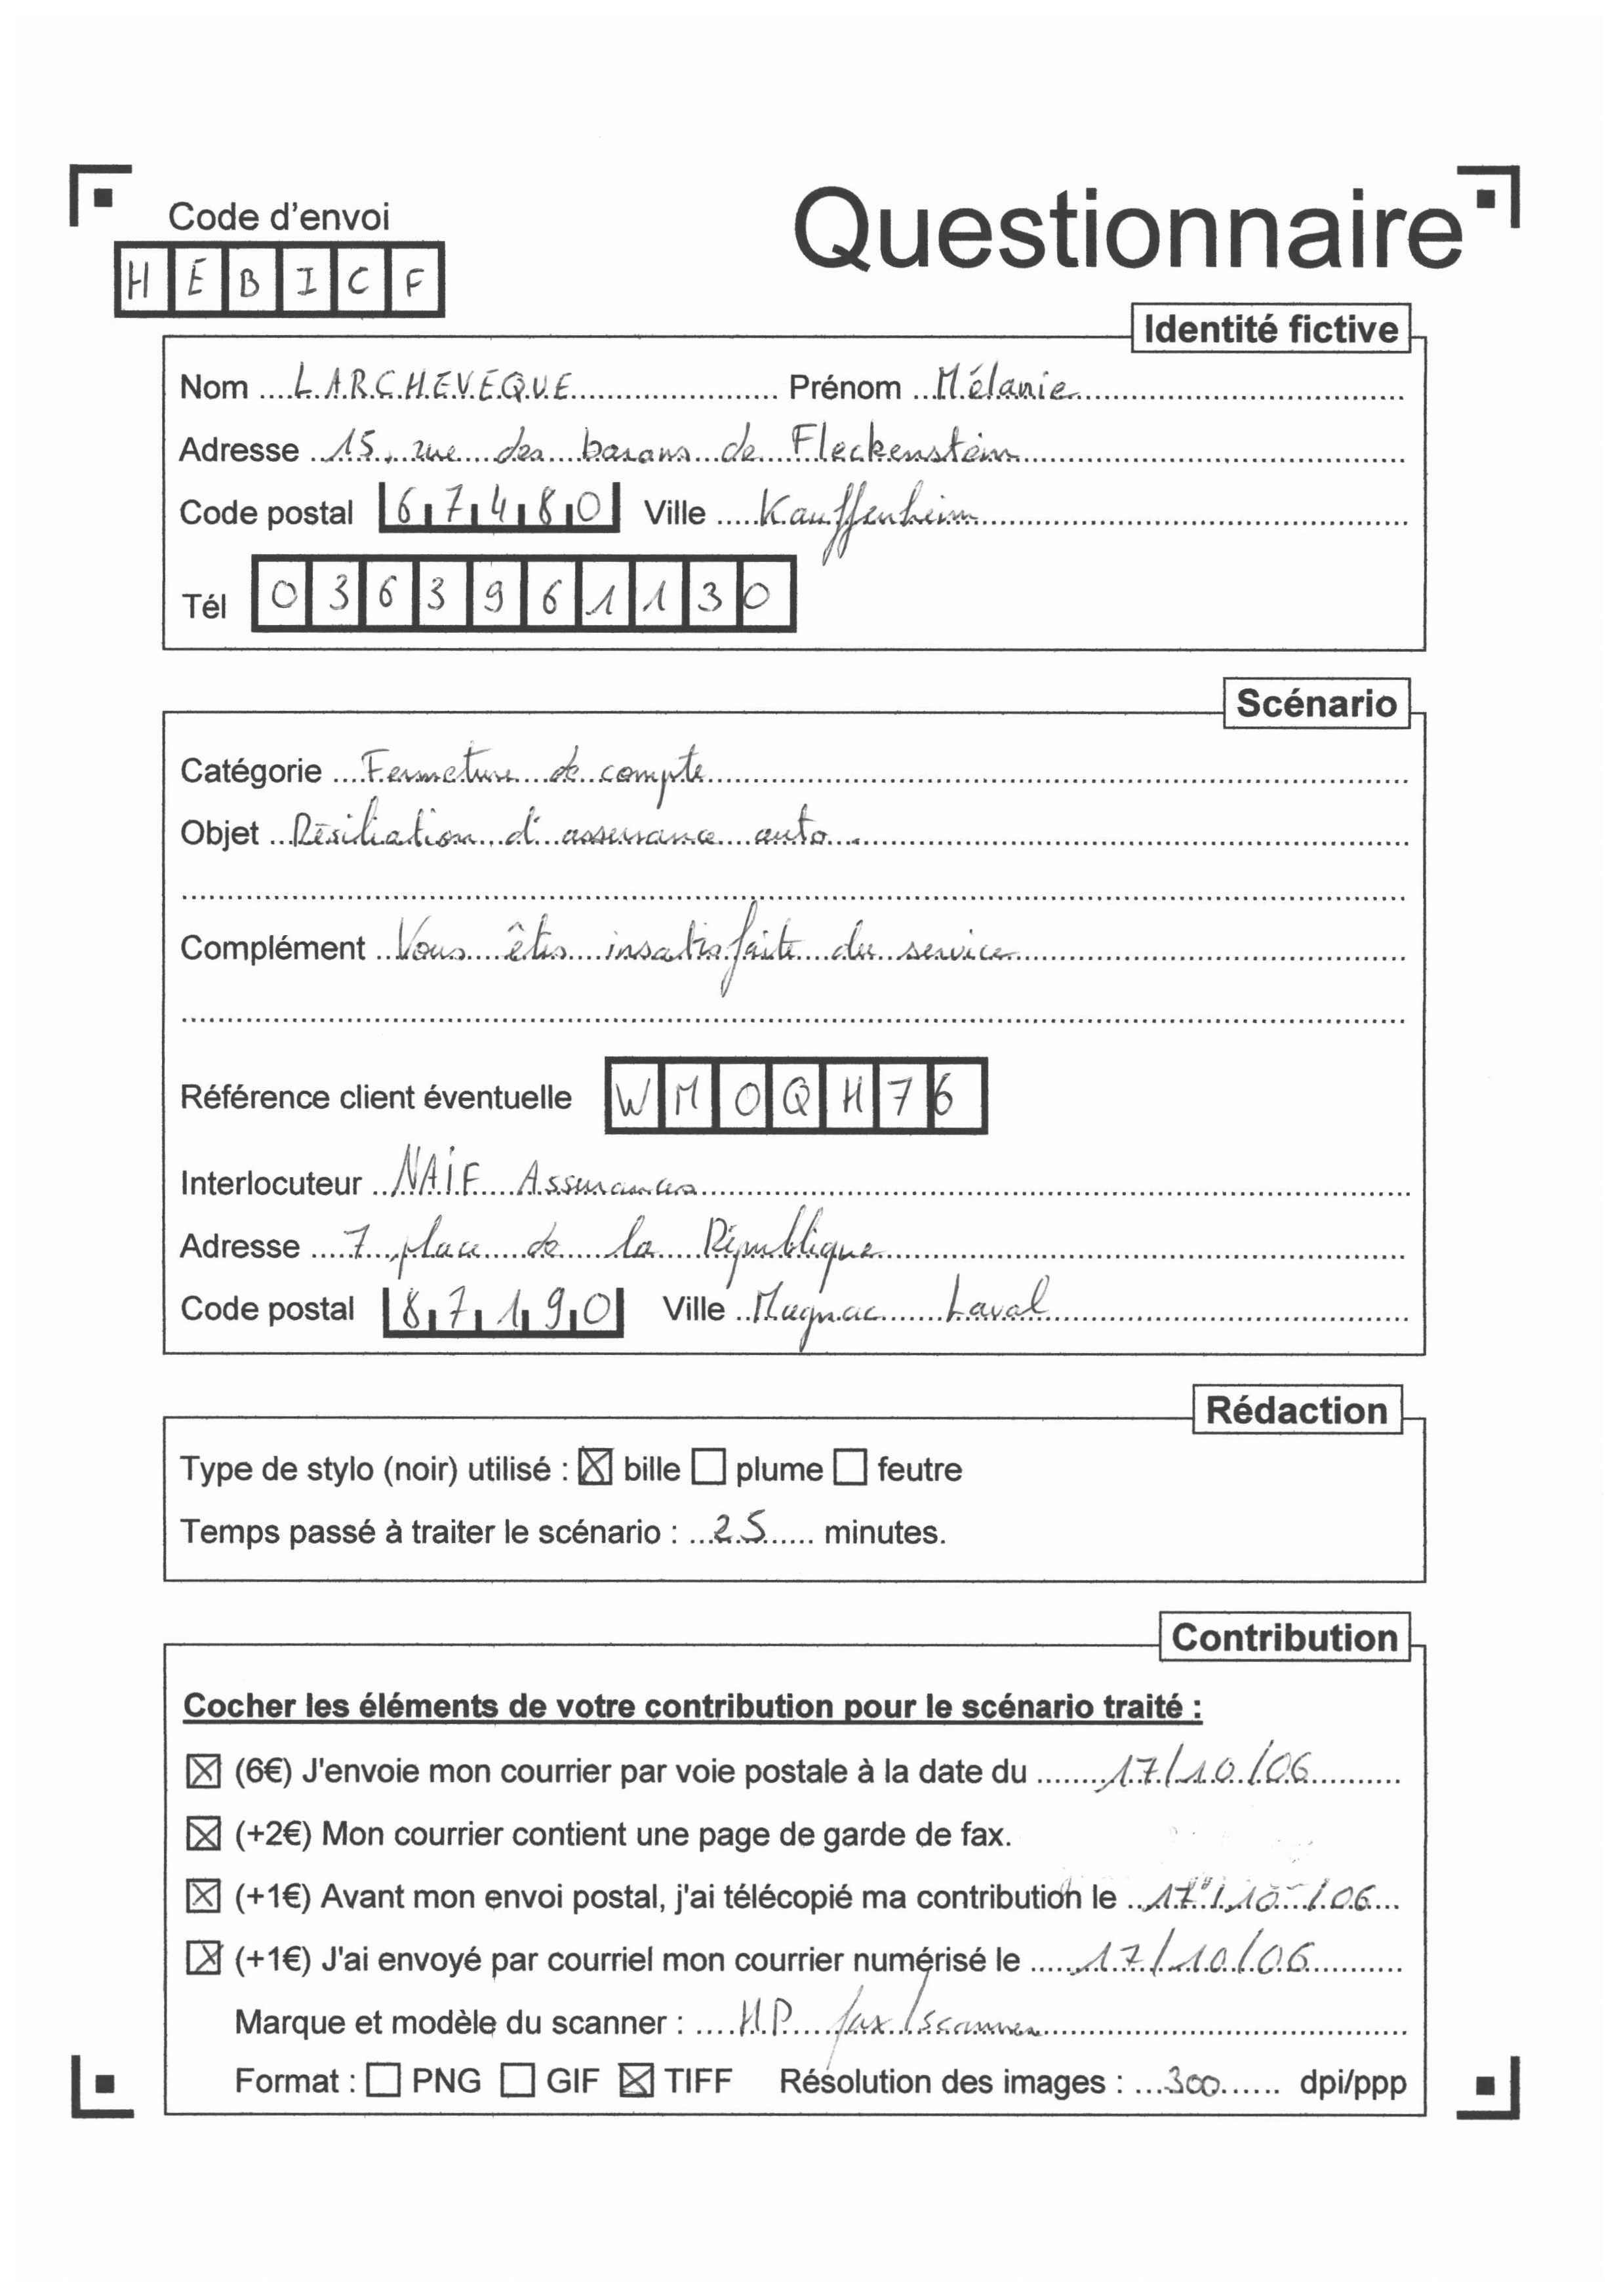 Code d'envoi
Questionnaire
H E B I C F
Identité fictive
Nom LARCHEVEQUE Prénom Mélanie
Adresse 15, rue des barons de Fleckenstein
Code postal 67480 Ville Kauffenheim
Tél 0363961130
Scénario
Catégorie Fermeture de compte
Objet Résiliation d'assurance auto
Complément Vous êtes insatisfaite du service
Référence client éventuelle WMOQH76
Interlocuteur NAIF Assurances
Adresse 7 place de la République
Code postal 87190 Ville Magnac Laval
Rédaction
Type de stylo (noir) utilisé : ☒ bille ☐ plume ☐ feutre
Temps passé à traiter le scénario : 25 minutes.
Contribution
Cocher les éléments de votre contribution pour le scénario traité :
☒ (6€) J'envoie mon courrier par voie postale à la date du 17/10/06
☒ (+2€) Mon courrier contient une page de garde de fax.
☒ (+1€) Avant mon envoi postal, j'ai télécopié ma contribution le 17/10/06
☒ (+1€) J'ai envoyé par courriel mon courrier numérisé le 17/10/06
Marque et modèle du scanner : HP fax/scanner
Format : ☐ PNG ☐ GIF ☒ TIFF Résolution des images : 300 dpi/ppp